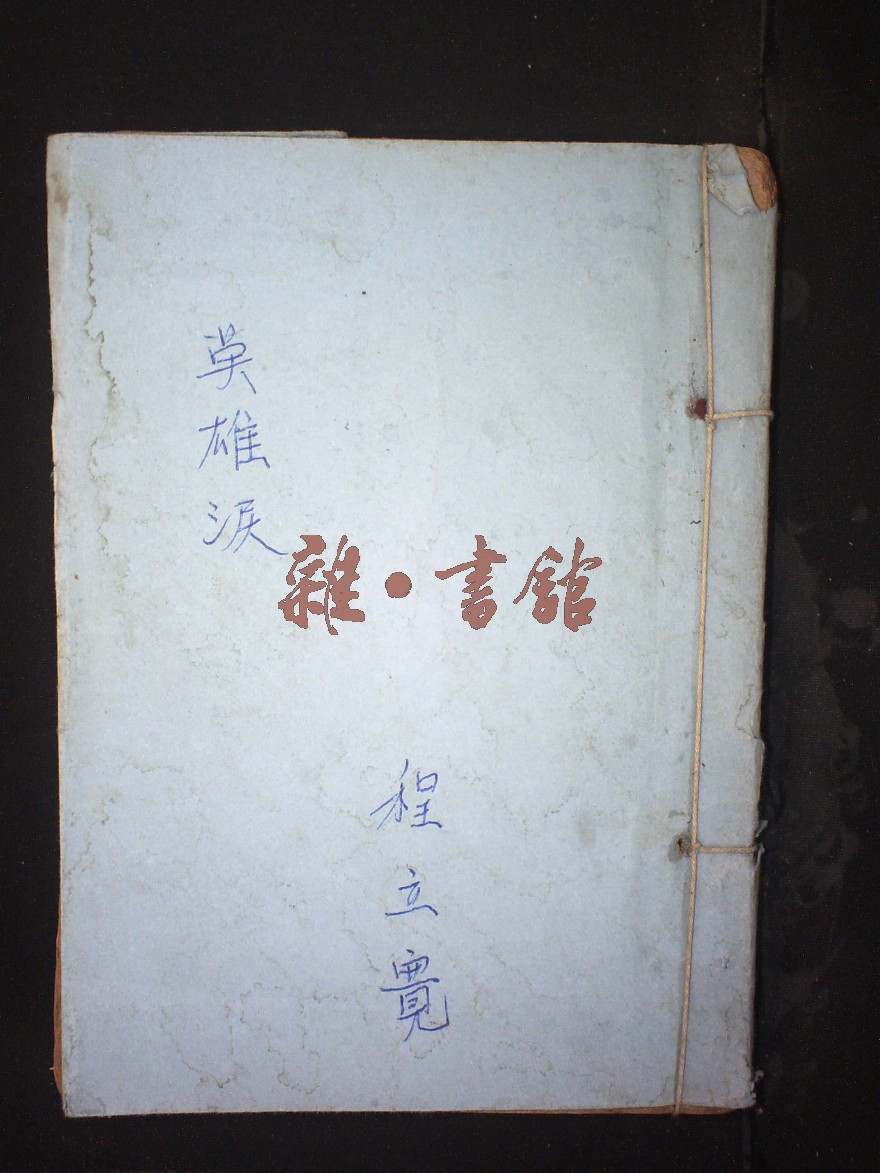 英雄淚
雜·書館
程立寬